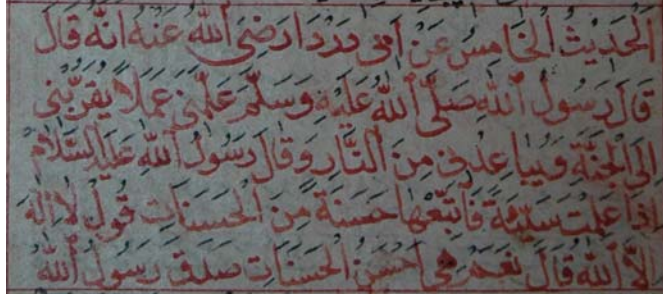 اَلْحَدِيثُ الْخَامِسُ عَنْ اَبِى دَرْدَا رَضِىَ اللّٰهُ عَنْهُ اَنَّهُ قَالَ
قَالَ رَسُولُ اللّٰهِ صَلَّى اللّٰهُ عَلَيْهِ وَسَلَّمَ عَلِّمْنِى عَمَلًا يُقَرِّبُنِى
اِلَى الْجَنَّةِ وَيُبَاعِدُنِى مِنَ النَّارِ وَقَالَ رَسُولُ اللّٰهِ عَلَيْهِ السَّلَامُ
اِذَا عَمِلْتَ سَيِّئَةً فَاتْبَعْهَا حَسَنَةً مِنَ الْحَسَنَاتِ قَوْلُ لَا اِلٰهَ
اِلَّا اللّٰهُ قَالَ نَعَمْ هِىَ اَحْسَنُ الْحَسَنَاتِ صَدَقَ رَسُولُ اللّٰهِ